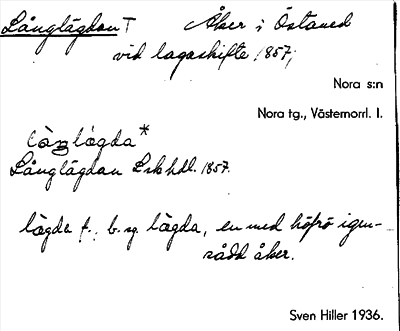 Långlägdan T Åker i Östaned
vid lagaskifte 1857,
Nora s:n
Nora tg., Västernorrl. l.
làŋlǻgda*
Långlägdan Lskhdl. 1857.
lägda f., b. sg. lägda, en med höfrö igen-
sådd åker.
Sven Hiller 1936.